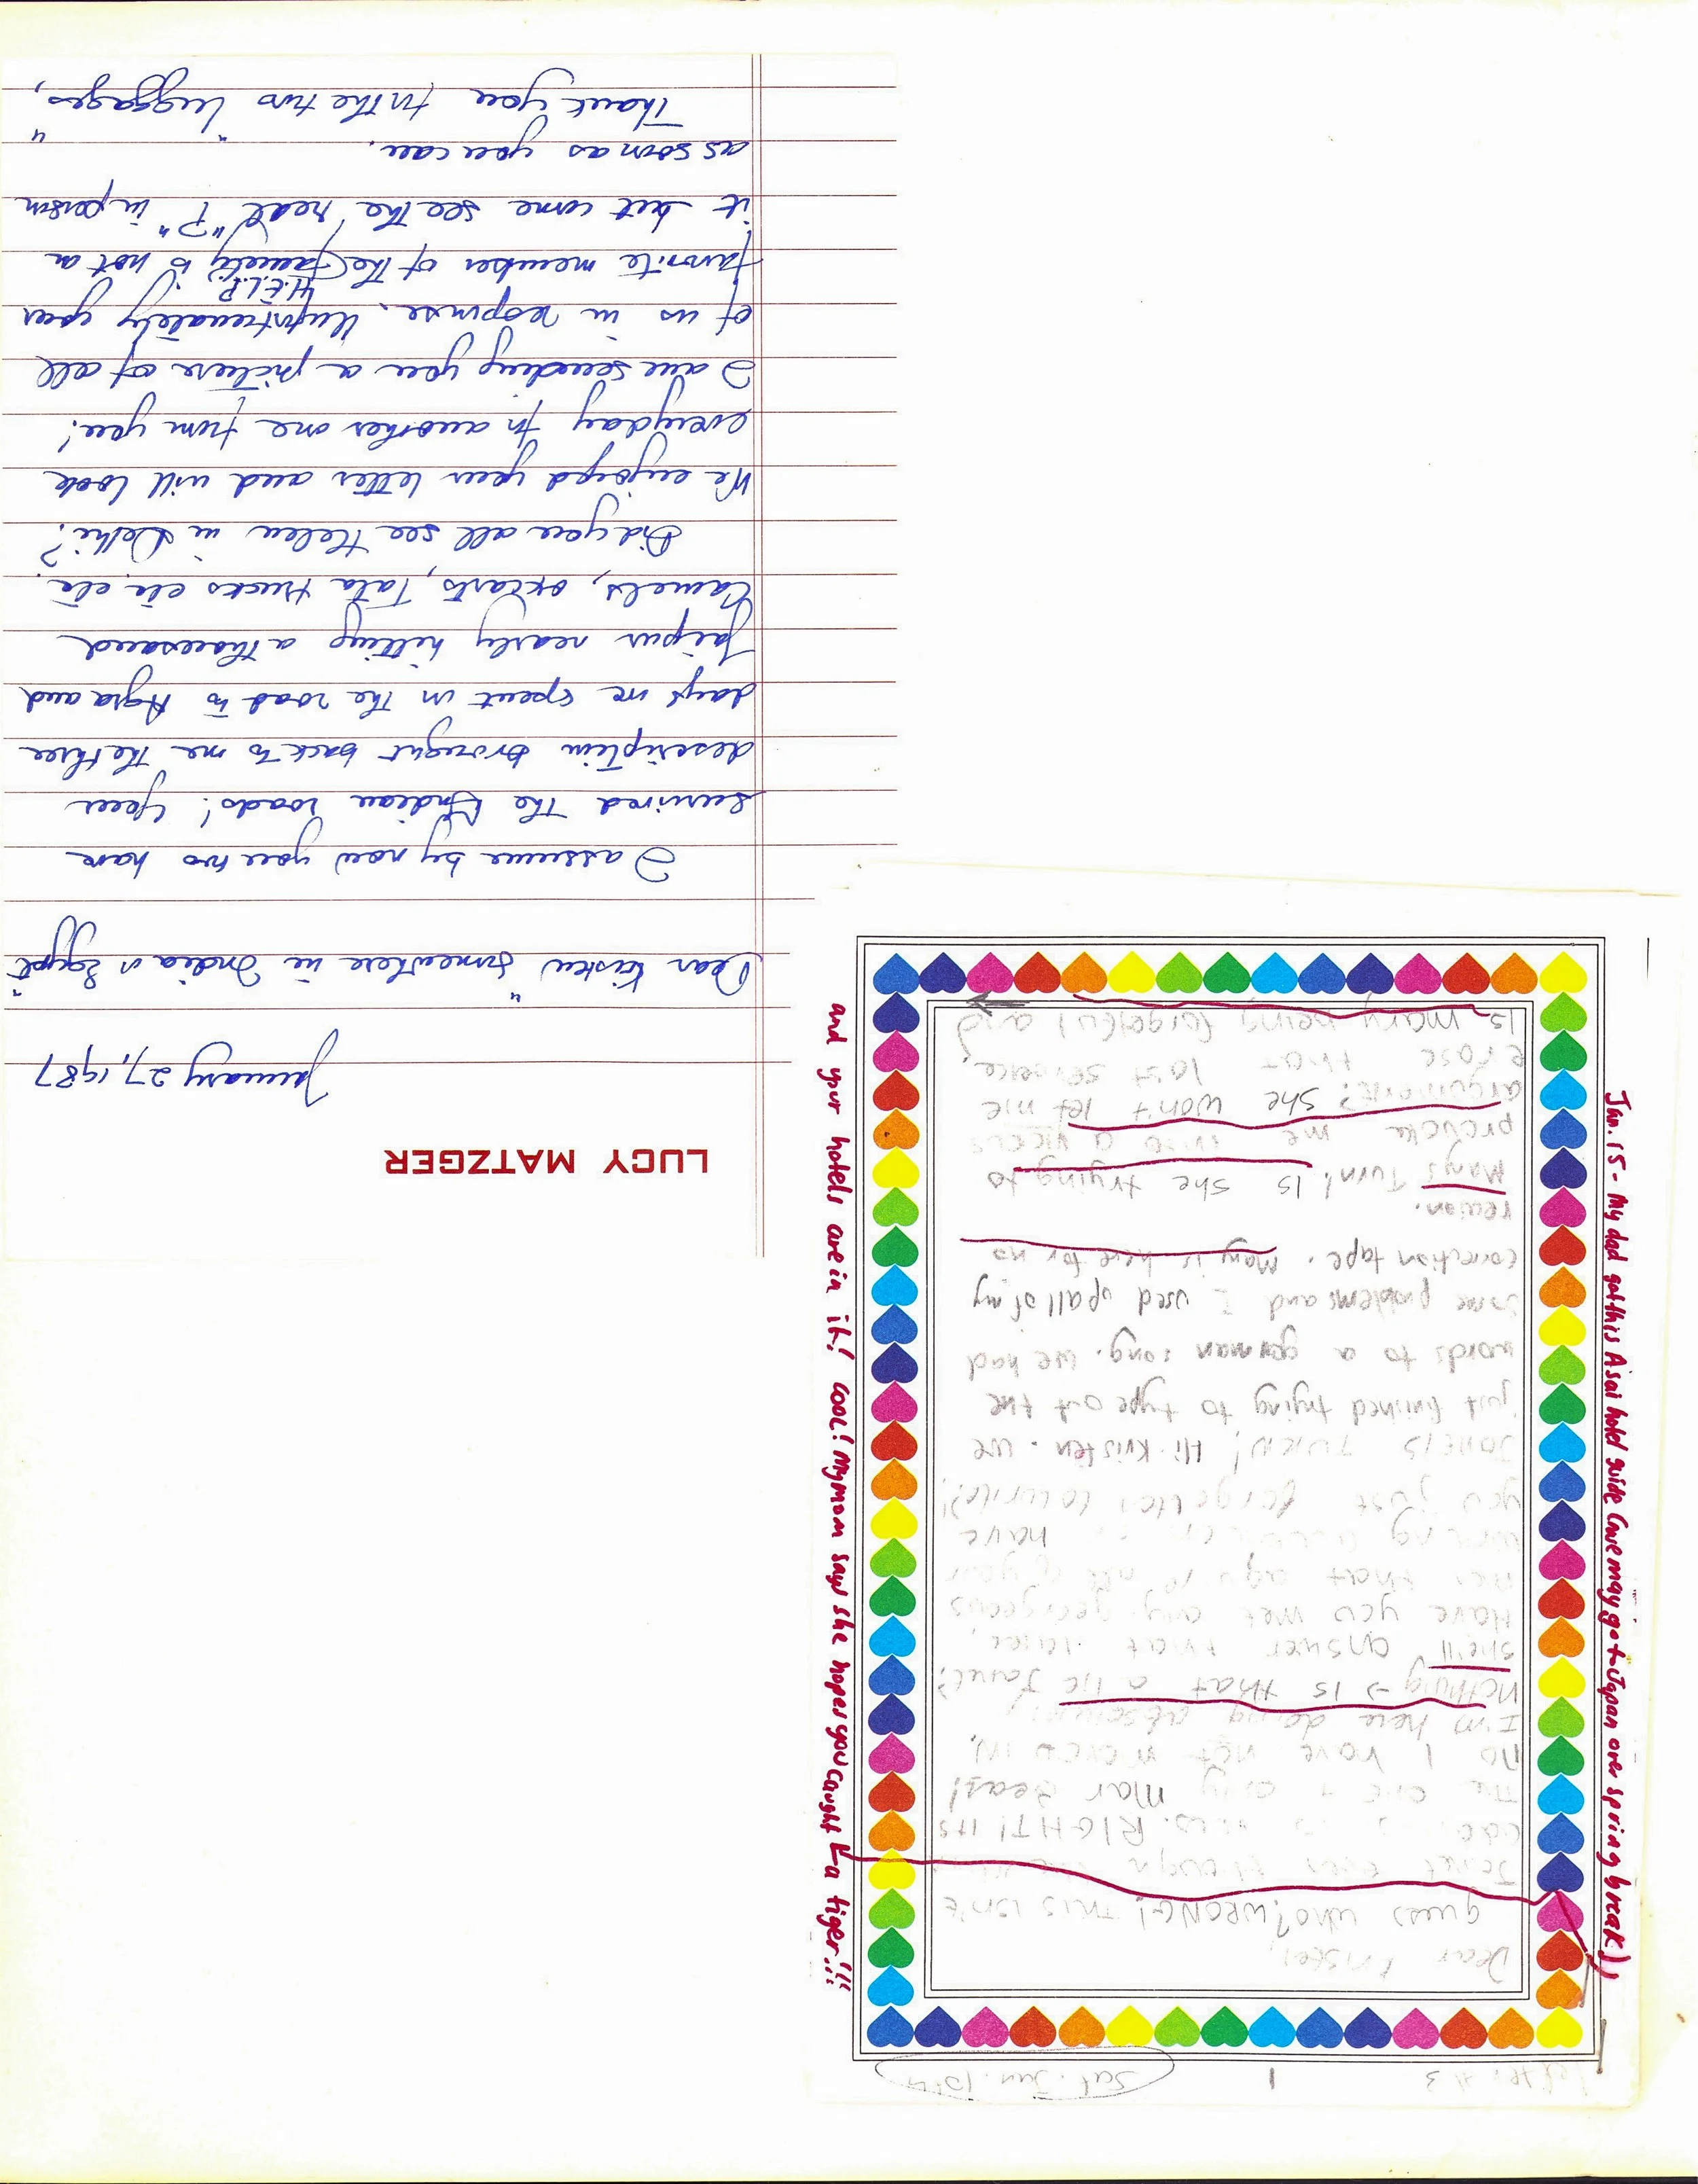 LUCY MATZGER
January 27, 1987
Dear Kristen "Somewhere in India or Egypt"
I assume by now you two have
survived the Indian roads! Your
description brought back to me the three
days we spent in the road to Agra and
Jaipur nearly hitting a thousand
camels, oxcarts, Tata trucks etc. etc.
Did you all see Helen in Delhi?
We enjoyed your letter and will look
everyday for another one from you!
I am sending you a picture of all
of us in response. Unfortunately your
favorite member of the family is not in
H.E.L.P.
it but come see the real "P" in person
as soon as you can.
Thank you for the two "luggages,"
Letter #3
1
Sat. Jan.
Dear Kristen,
guess who? WRONG! This isn't
Janet even though
RIGHT! Its
the one & only Mar Bear!
No I have not moved in,
I'm here doing absolutely
nothing → is that a lie Janet?
she'll answer that later,
Have you met any gorgeous
men that age
have
you just forgotten to write?!
JANETS TURN! Hi Kristen. We
just finished trying to type out the
words to a german song. we had
some problems and I used up all of my
correction tape. Mary is here for no
reason.
Marys Turn! Is she trying to
provoke me into a vicous
argument? She won't let me
erase that last sentence,
Is Mary being forgetful and
Jan. 15 - My dad got this Asai hotel guide (we may go to Japan over spring break),
and your hotels are in it! cool! My mom says she hopes you caught a tiger!!!